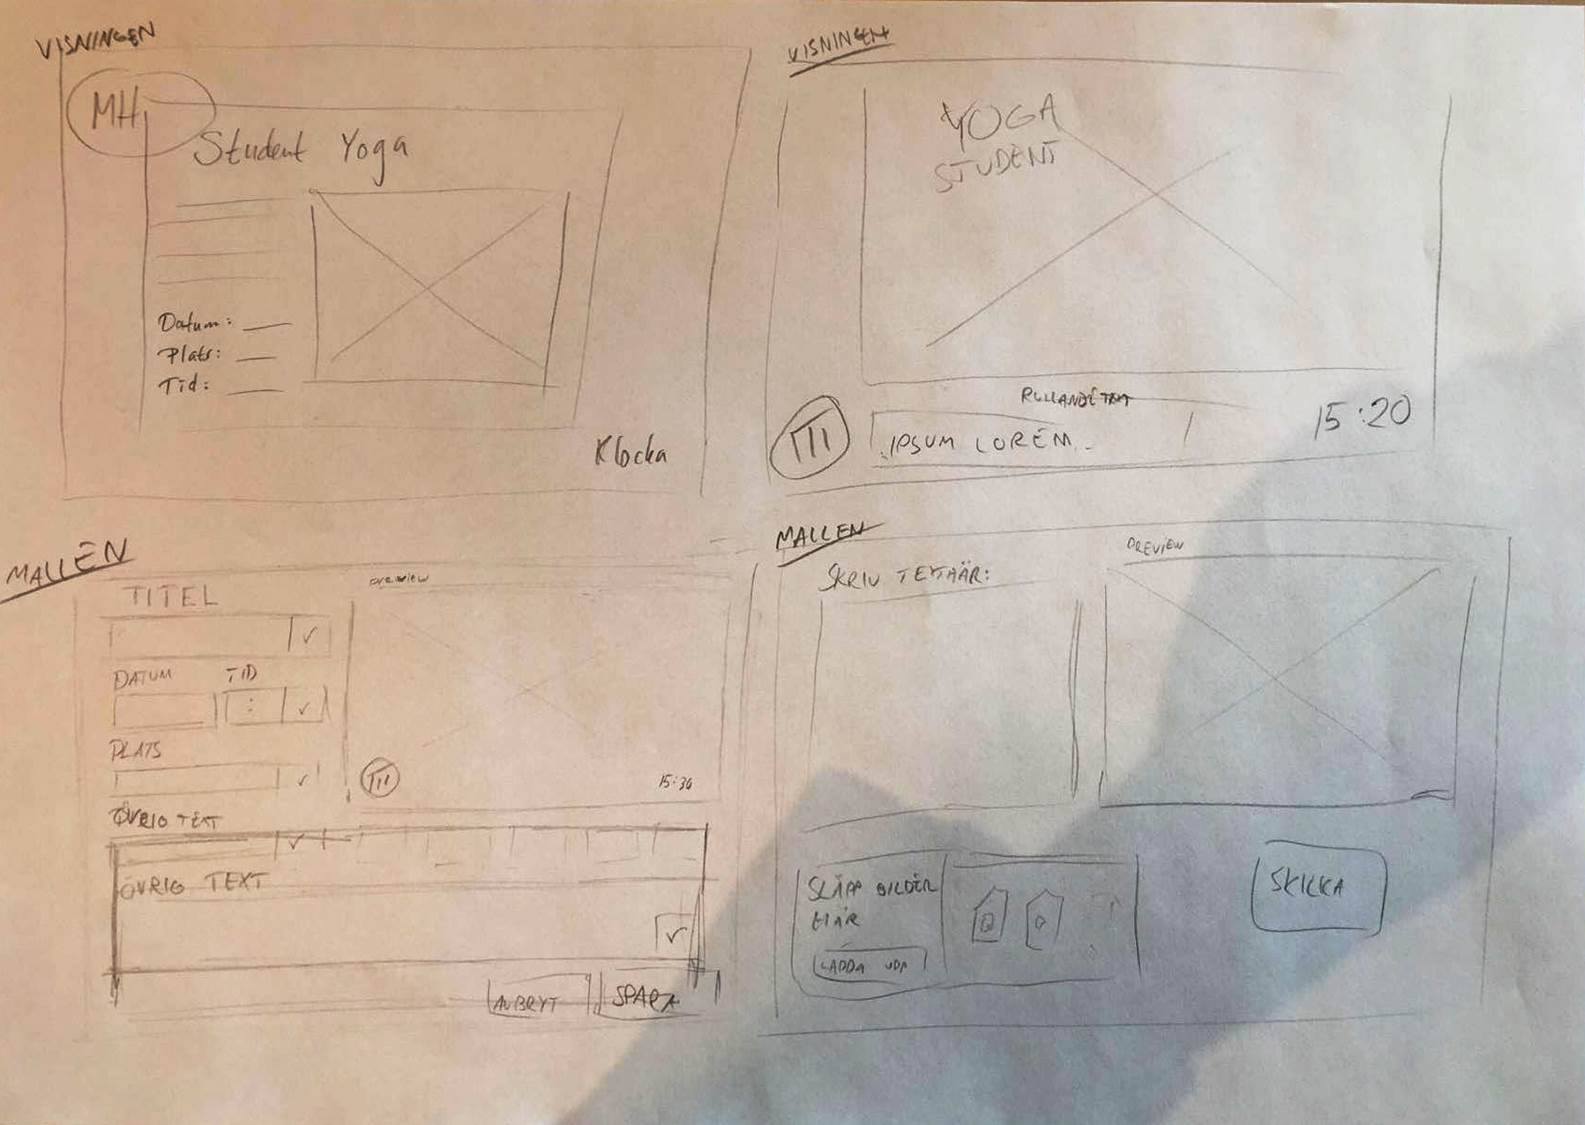 VISNINGEN
MH
Student Yoga
Datum:
Plats:
Tid:
Klocka
VISNINGEN
YOGA
STUDENT
RULLANDE TEXT
IPSUM LOREM
15:20
MALLEN
TITEL
DATUM TID
:
PLATS
ÖVRIG TEXT
ÖVRIG TEXT
AVBRYT SPARA
preview
MALLEN
SKRIV TEXT HÄR:
PREVIEW
SLÄPP BILDER
HÄR
LADDA UPP